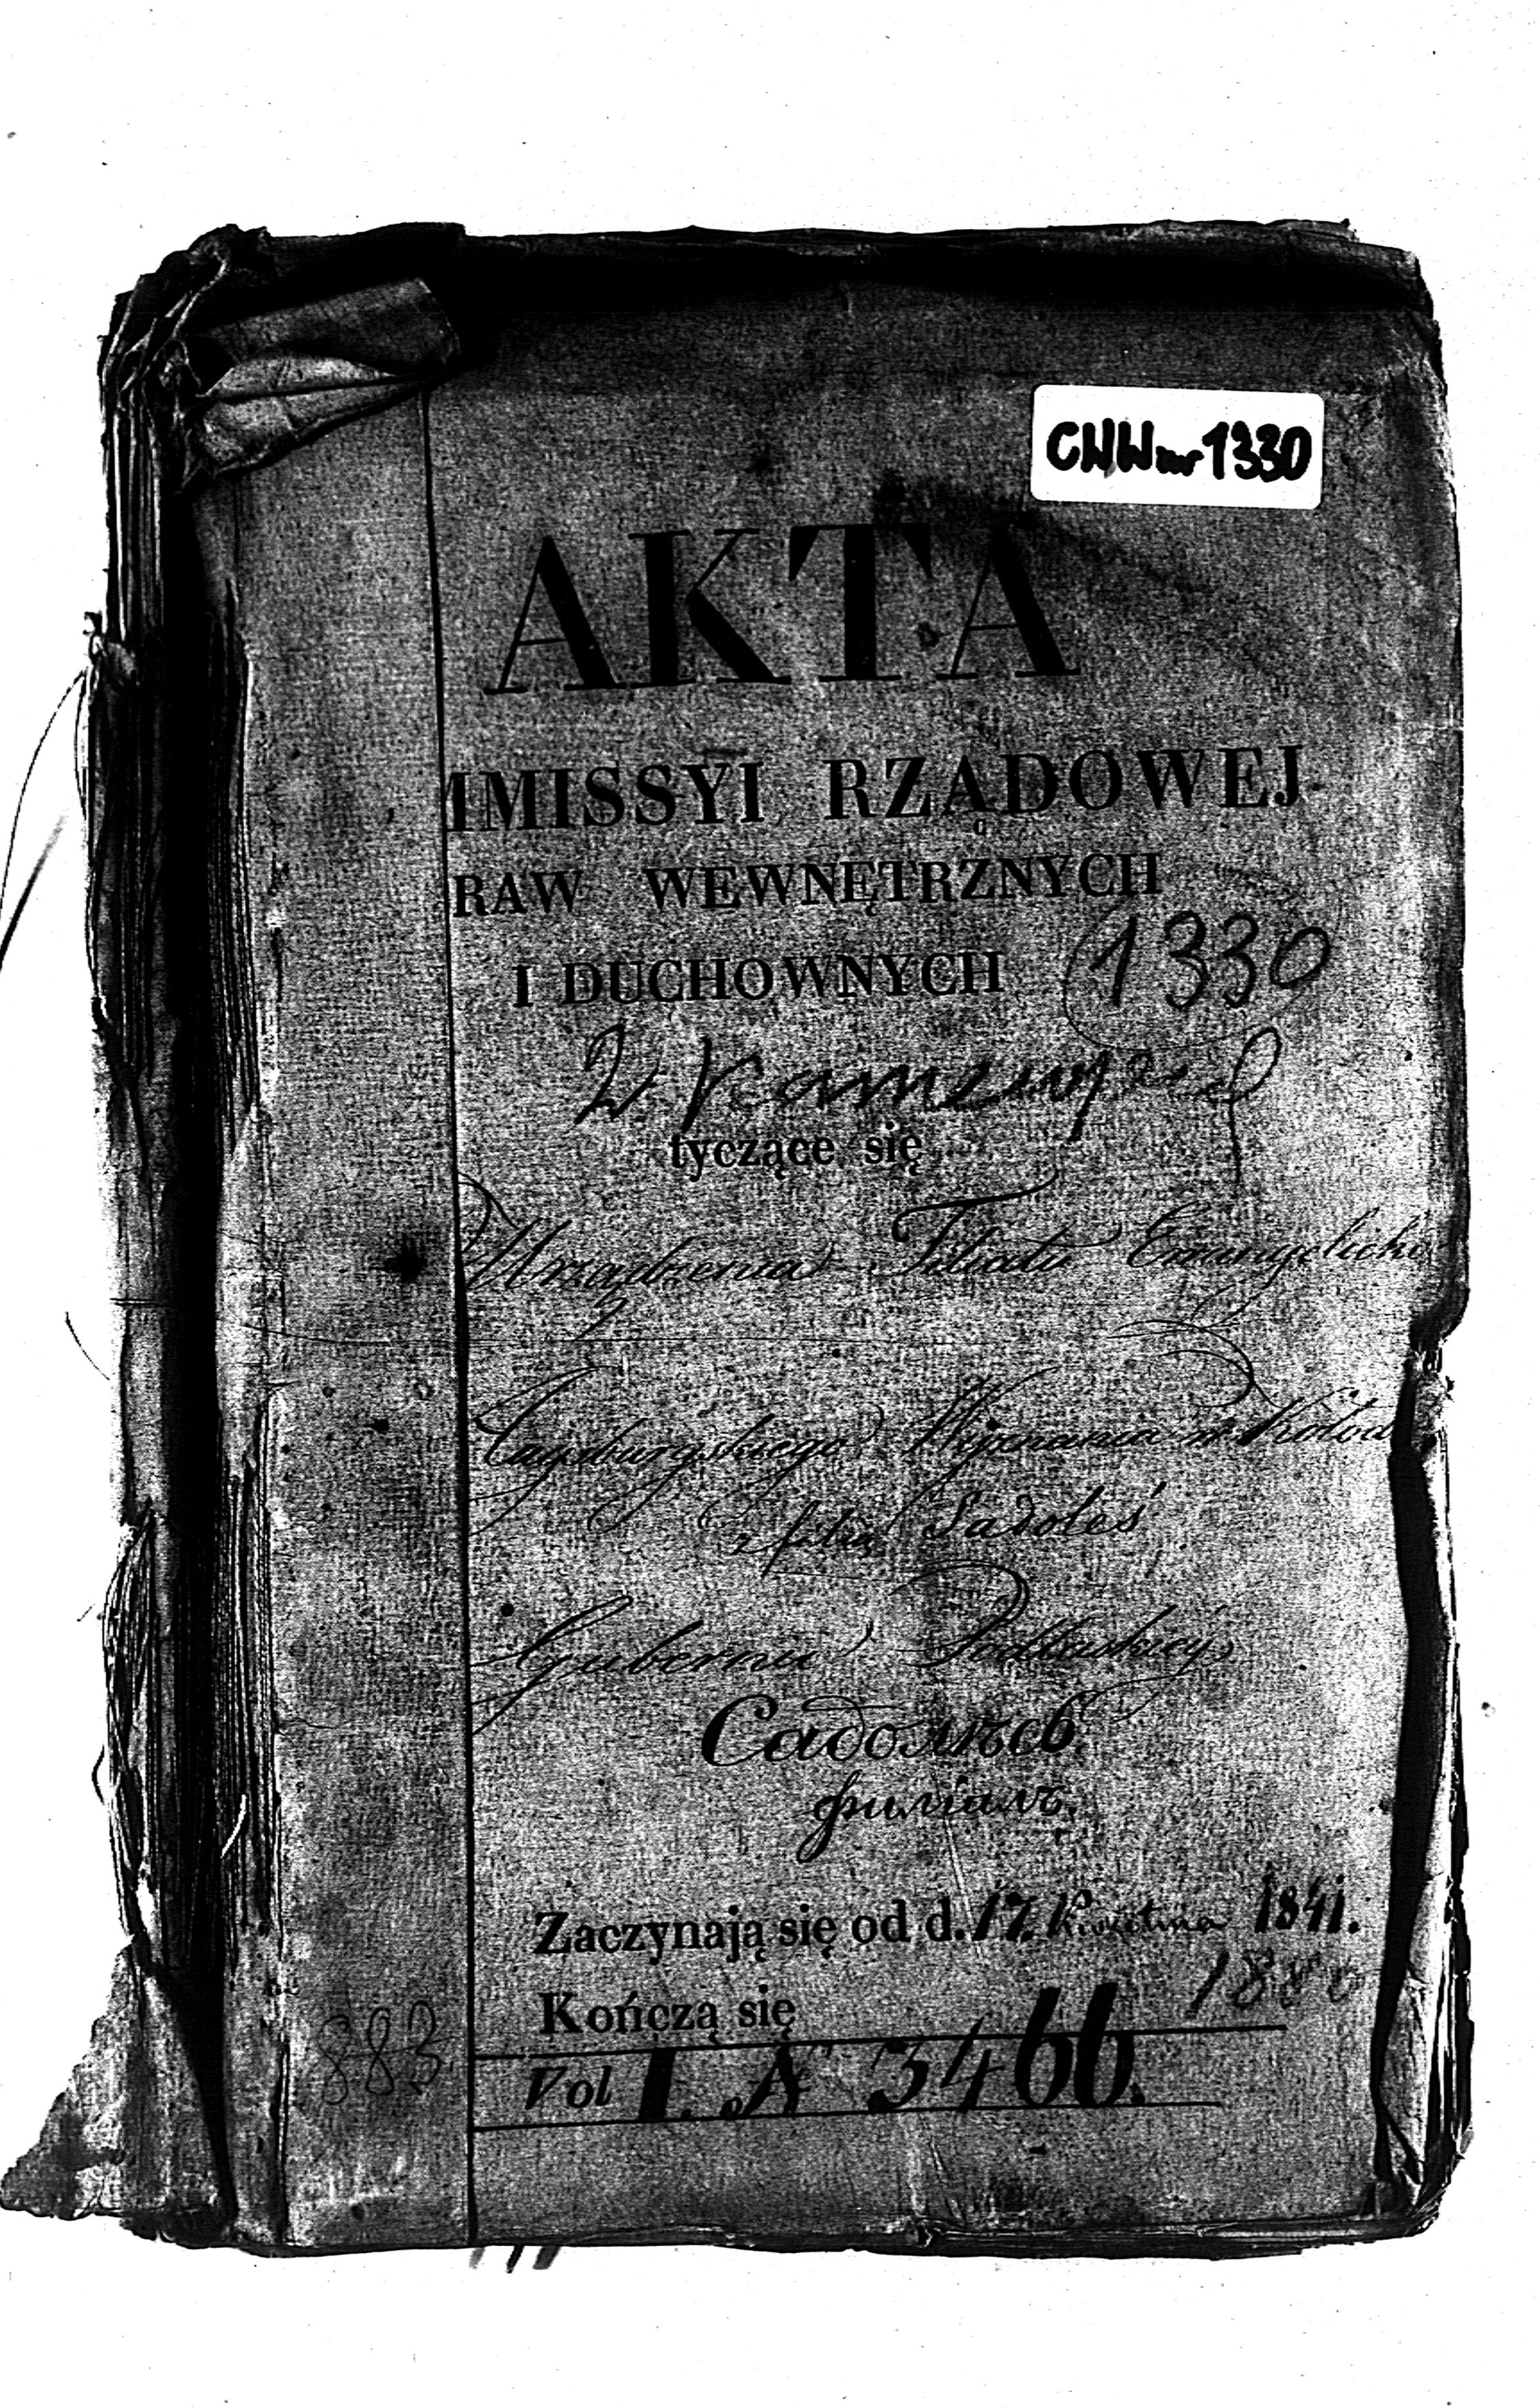 CWW nr 1330
AKTA
MMISSYI RZĄDOWEJ
RAW WEWNĘTRZNYCH
I DUCHOWNYCH
1330
tyczące się
Urządzenia Filiału Ewangelicko
Augsburgskiego Wyznania w
z filią Sadoleś
Gubernii Podlaskiej
Садолѣсь
филіалъ.
Zaczynają się od d. 17. Kwietnia 1841.
Kończą się
Vol I. № 3466.
883.